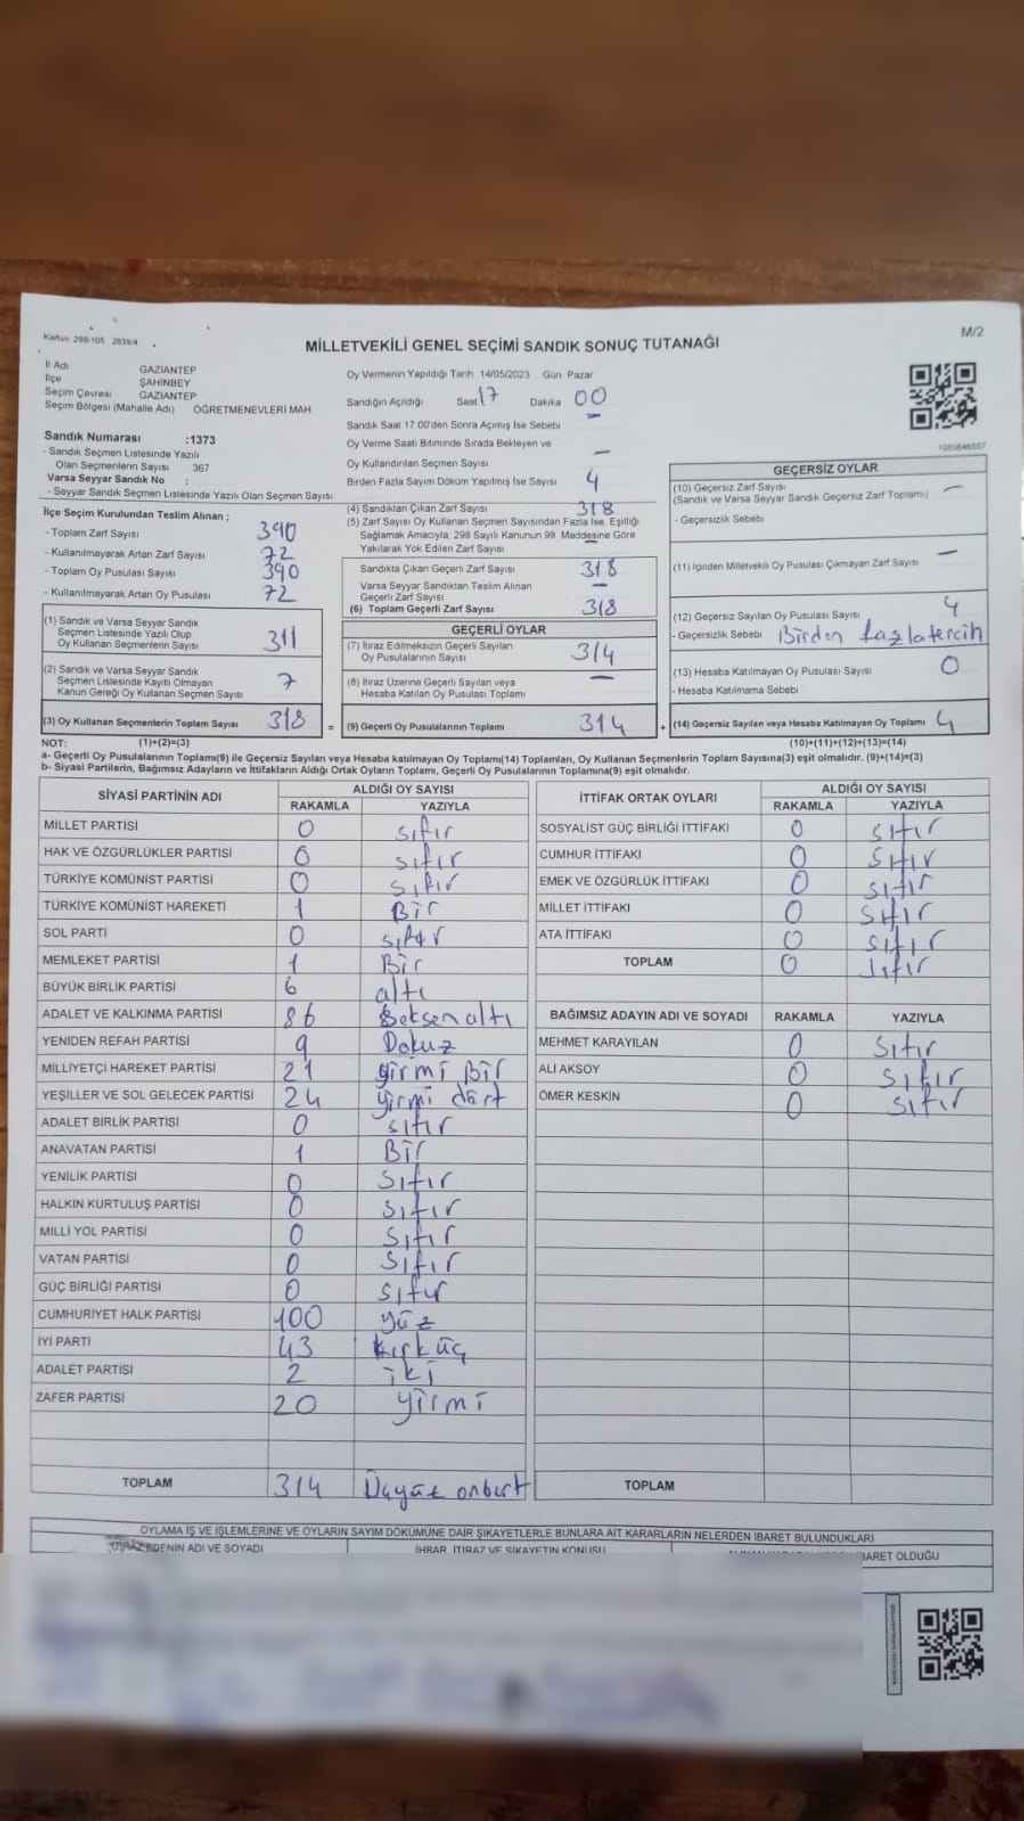 M/2
MİLLETVEKİLİ GENEL SEÇİMİ SANDIK SONUÇ TUTANAĞI
İl Adı GAZİANTEP
İlçe ŞAHİNBEY
Seçim Çevresi GAZİANTEP
Seçim Bölgesi (Mahalle Adı) ÖĞRETMENEVLERİ MAH
Sandık Numarası :1373
- Sandık Seçmen Listesinde Yazılı
Olan Seçmenlerin Sayısı 367
Varsa Seyyar Sandık No :
- Seyyar Sandık Seçmen Listesinde Yazılı Olan Seçmen Sayısı
Oy Vermenin Yapıldığı Tarih 14/05/2023 Gün Pazar
Sandığın Açıldığı Saat 17 Dakika 00
Sandık Saat 17.00'den Sonra Açılmış İse Sebebi —
Oy Verme Saati Bitiminde Sırada Bekleyen ve
Oy Kullandırılan Seçmen Sayısı —
Birden Fazla Sayım Döküm Yapılmış İse Sayısı 4
İlçe Seçim Kurulundan Teslim Alınan ;
- Toplam Zarf Sayısı 390
- Kullanılmayarak Artan Zarf Sayısı 72
- Toplam Oy Pusulası Sayısı 390
- Kullanılmayarak Artan Oy Pusulası 72
(1) Sandık ve Varsa Seyyar Sandık
Seçmen Listesinde Yazılı Olup
Oy Kullanan Seçmenlerin Sayısı 311
(2) Sandık ve Varsa Seyyar Sandık
Seçmen Listesinde Kayıtlı Olmayan
Kanun Gereği Oy Kullanan Seçmen Sayısı 7
(3) Oy Kullanan Seçmenlerin Toplam Sayısı 318 =
(4) Sandıktan Çıkan Zarf Sayısı 318
(5) Zarf Sayısı Oy Kullanan Seçmen Sayısından Fazla İse, Eşitliği
Sağlamak Amacıyla, 298 Sayılı Kanunun 98. Maddesine Göre
Yakılarak Yok Edilen Zarf Sayısı —
Sandıkta Çıkan Geçerli Zarf Sayısı 318
Varsa Seyyar Sandıktan Teslim Alınan
Geçerli Zarf Sayısı —
(6) Toplam Geçerli Zarf Sayısı 318
GEÇERLİ OYLAR
(7) İtiraz Edilmeksizin Geçerli Sayılan
Oy Pusulalarının Sayısı 314
(8) İtiraz Üzerine Geçerli Sayılan veya
Hesaba Katılan Oy Pusulası Toplamı —
(9) Geçerli Oy Pusulalarının Toplamı 314 +
GEÇERSİZ OYLAR
(10) Geçersiz Zarf Sayısı —
(Sandık ve Varsa Seyyar Sandık Geçersiz Zarf Toplamı)
- Geçersizlik Sebebi
(11) İçinden Milletvekili Oy Pusulası Çıkmayan Zarf Sayısı —
(12) Geçersiz Sayılan Oy Pusulası Sayısı 4
- Geçersizlik Sebebi Birden fazla tercih
(13) Hesaba Katılmayan Oy Pusulası Sayısı 0
- Hesaba Katılmama Sebebi
(14) Geçersiz Sayılan veya Hesaba Katılmayan Oy Toplamı 4
NOT: (1)+(2)=(3) (10)+(11)+(12)+(13)=(14)
a- Geçerli Oy Pusulalarının Toplamı(9) ile Geçersiz Sayılan veya Hesaba katılmayan Oy Toplamı(14) Toplamları, Oy Kullanan Seçmenlerin Toplam Sayısına(3) eşit olmalıdır. (9)+(14)=(3)
b- Siyasi Partilerin, Bağımsız Adayların ve İttifakların Aldığı Ortak Oyların Toplamı, Geçerli Oy Pusulalarının Toplamına(9) eşit olmalıdır.
SİYASİ PARTİNİN ADI ALDIĞI OY SAYISI
RAKAMLA YAZIYLA
MİLLET PARTİSİ 0 sıfır
HAK VE ÖZGÜRLÜKLER PARTİSİ 0 sıfır
TÜRKİYE KOMÜNİST PARTİSİ 0 sıfır
TÜRKİYE KOMÜNİST HAREKETİ 1 Bir
SOL PARTİ 0 sıfır
MEMLEKET PARTİSİ 1 Bir
BÜYÜK BİRLİK PARTİSİ 6 altı
ADALET VE KALKINMA PARTİSİ 86 Seksen altı
YENİDEN REFAH PARTİSİ 9 Dokuz
MİLLİYETÇİ HAREKET PARTİSİ 21 yirmi Bir
YEŞİLLER VE SOL GELECEK PARTİSİ 24 yirmi dört
ADALET BİRLİK PARTİSİ 0 sıfır
ANAVATAN PARTİSİ 1 Bir
YENİLİK PARTİSİ 0 sıfır
HALKIN KURTULUŞ PARTİSİ 0 sıfır
MİLLİ YOL PARTİSİ 0 sıfır
VATAN PARTİSİ 0 sıfır
GÜÇ BİRLİĞİ PARTİSİ 0 sıfır
CUMHURİYET HALK PARTİSİ 100 yüz
İYİ PARTİ 43 kırk üç
ADALET PARTİSİ 2 iki
ZAFER PARTİSİ 20 yirmi
TOPLAM 314 Üçyüz ondört
İTTİFAK ORTAK OYLARI ALDIĞI OY SAYISI
RAKAMLA YAZIYLA
SOSYALİST GÜÇ BİRLİĞİ İTTİFAKI 0 sıfır
CUMHUR İTTİFAKI 0 sıfır
EMEK VE ÖZGÜRLÜK İTTİFAKI 0 sıfır
MİLLET İTTİFAKI 0 sıfır
ATA İTTİFAKI 0 sıfır
TOPLAM 0 sıfır
BAĞIMSIZ ADAYIN ADI VE SOYADI RAKAMLA YAZIYLA
MEHMET KARAYILAN 0 sıfır
ALİ AKSOY 0 sıfır
ÖMER KESKİN 0 sıfır
TOPLAM
OYLAMA İŞ VE İŞLEMLERİNE VE OYLARIN SAYIM DÖKÜMÜNE DAİR ŞİKAYETLERLE BUNLARA AİT KARARLARIN NELERDEN İBARET BULUNDUKLARI
İTİRAZ EDENİN ADI VE SOYADI İHBAR, İTİRAZ VE ŞİKAYETİN KONUSU İBARET OLDUĞU